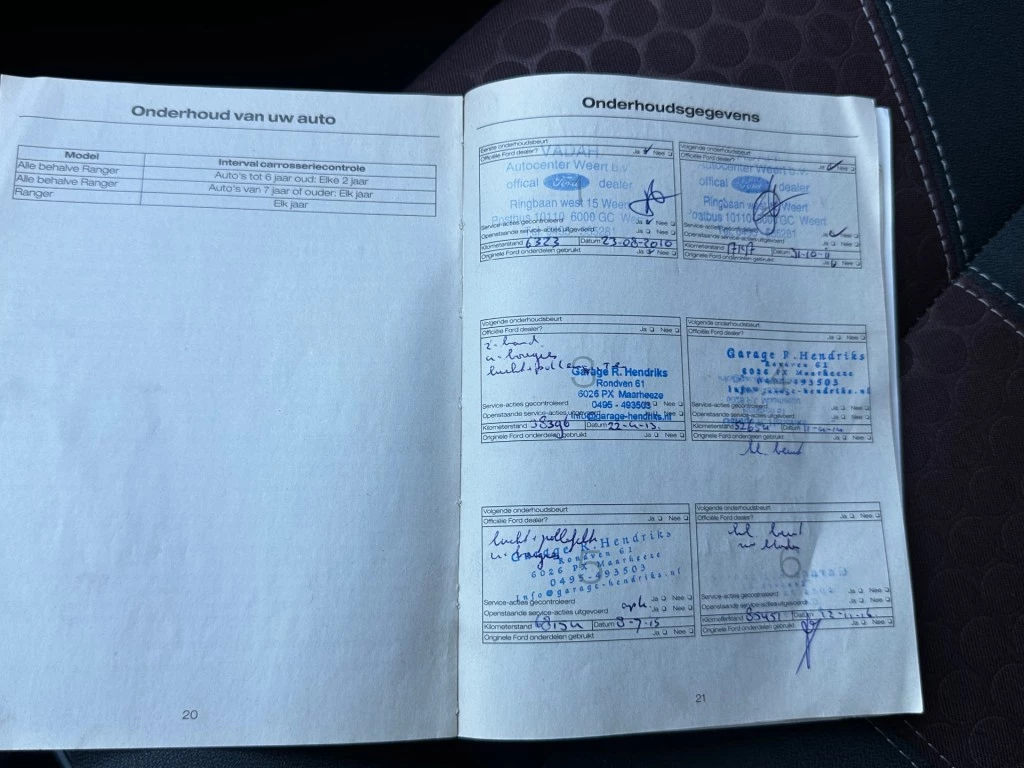 Onderhoud van uw auto
Model Interval carrosseriecontrole
Alle behalve Ranger Auto's tot 6 jaar oud: Elke 2 jaar
Alle behalve Ranger Auto's van 7 jaar of ouder: Elk jaar
Ranger Elk jaar
20
Onderhoudsgegevens
Eerste onderhoudsbeurt
Officiële Ford dealer? Ja Nee
VADAH
Autocenter Weert b.v.
offical Ford dealer
Ringbaan west 15 Weert
Postbus 10110 6000 GC
Service-acties gecontroleerd Ja Nee
Openstaande service-acties uitgevoerd
Kilometerstand 6323 Datum 23-08-2010
Originele Ford onderdelen gebruikt Ja Nee
Volgende onderhoudsbeurt
Officiële Ford dealer? Ja Nee
Autocenter Weert b.v.
offical Ford dealer
Ringbaan west 15 Weert
Postbus 10110 6000 GC Weert
Service-acties gecontroleerd
Openstaande service-acties uitgevoerd Ja Nee
Kilometerstand Datum
Originele Ford onderdelen gebruikt Ja Nee
Volgende onderhoudsbeurt
Officiële Ford dealer? Ja Nee
3
Garage R. Hendriks
Rondven 61
6026 PX Maarheeze
0495 - 493503
info@garage-hendriks.nl
Service-acties gecontroleerd Ja Nee
Openstaande service-acties uitgevoerd Nee
Kilometerstand 38396 Datum 22-4-13.
Originele Ford onderdelen gebruikt Ja Nee
Volgende onderhoudsbeurt
Officiële Ford dealer? Ja Nee
Garage R. Hendriks
Rondven 61
6026 PX Maarheeze
0495-493503
info@garage-hendriks.nl
Service-acties gecontroleerd
Openstaande service-acties uitgevoerd
Kilometerstand Datum
Originele Ford onderdelen gebruikt Ja Nee
Volgende onderhoudsbeurt
Officiële Ford dealer? Ja Nee
5
Garage R. Hendriks
Rondven 61
6026 PX Maarheeze
0495-493503
info@garage-hendriks.nl
Service-acties gecontroleerd Ja Nee
Openstaande service-acties uitgevoerd Nee
Kilometerstand Datum 8-7-15
Originele Ford onderdelen gebruikt Ja Nee
Volgende onderhoudsbeurt
Officiële Ford dealer? Ja Nee
6
Service-acties gecontroleerd Ja Nee
Openstaande service-acties uitgevoerd
Kilometerstand 85451 Datum
Originele Ford onderdelen gebruikt Ja Nee
21